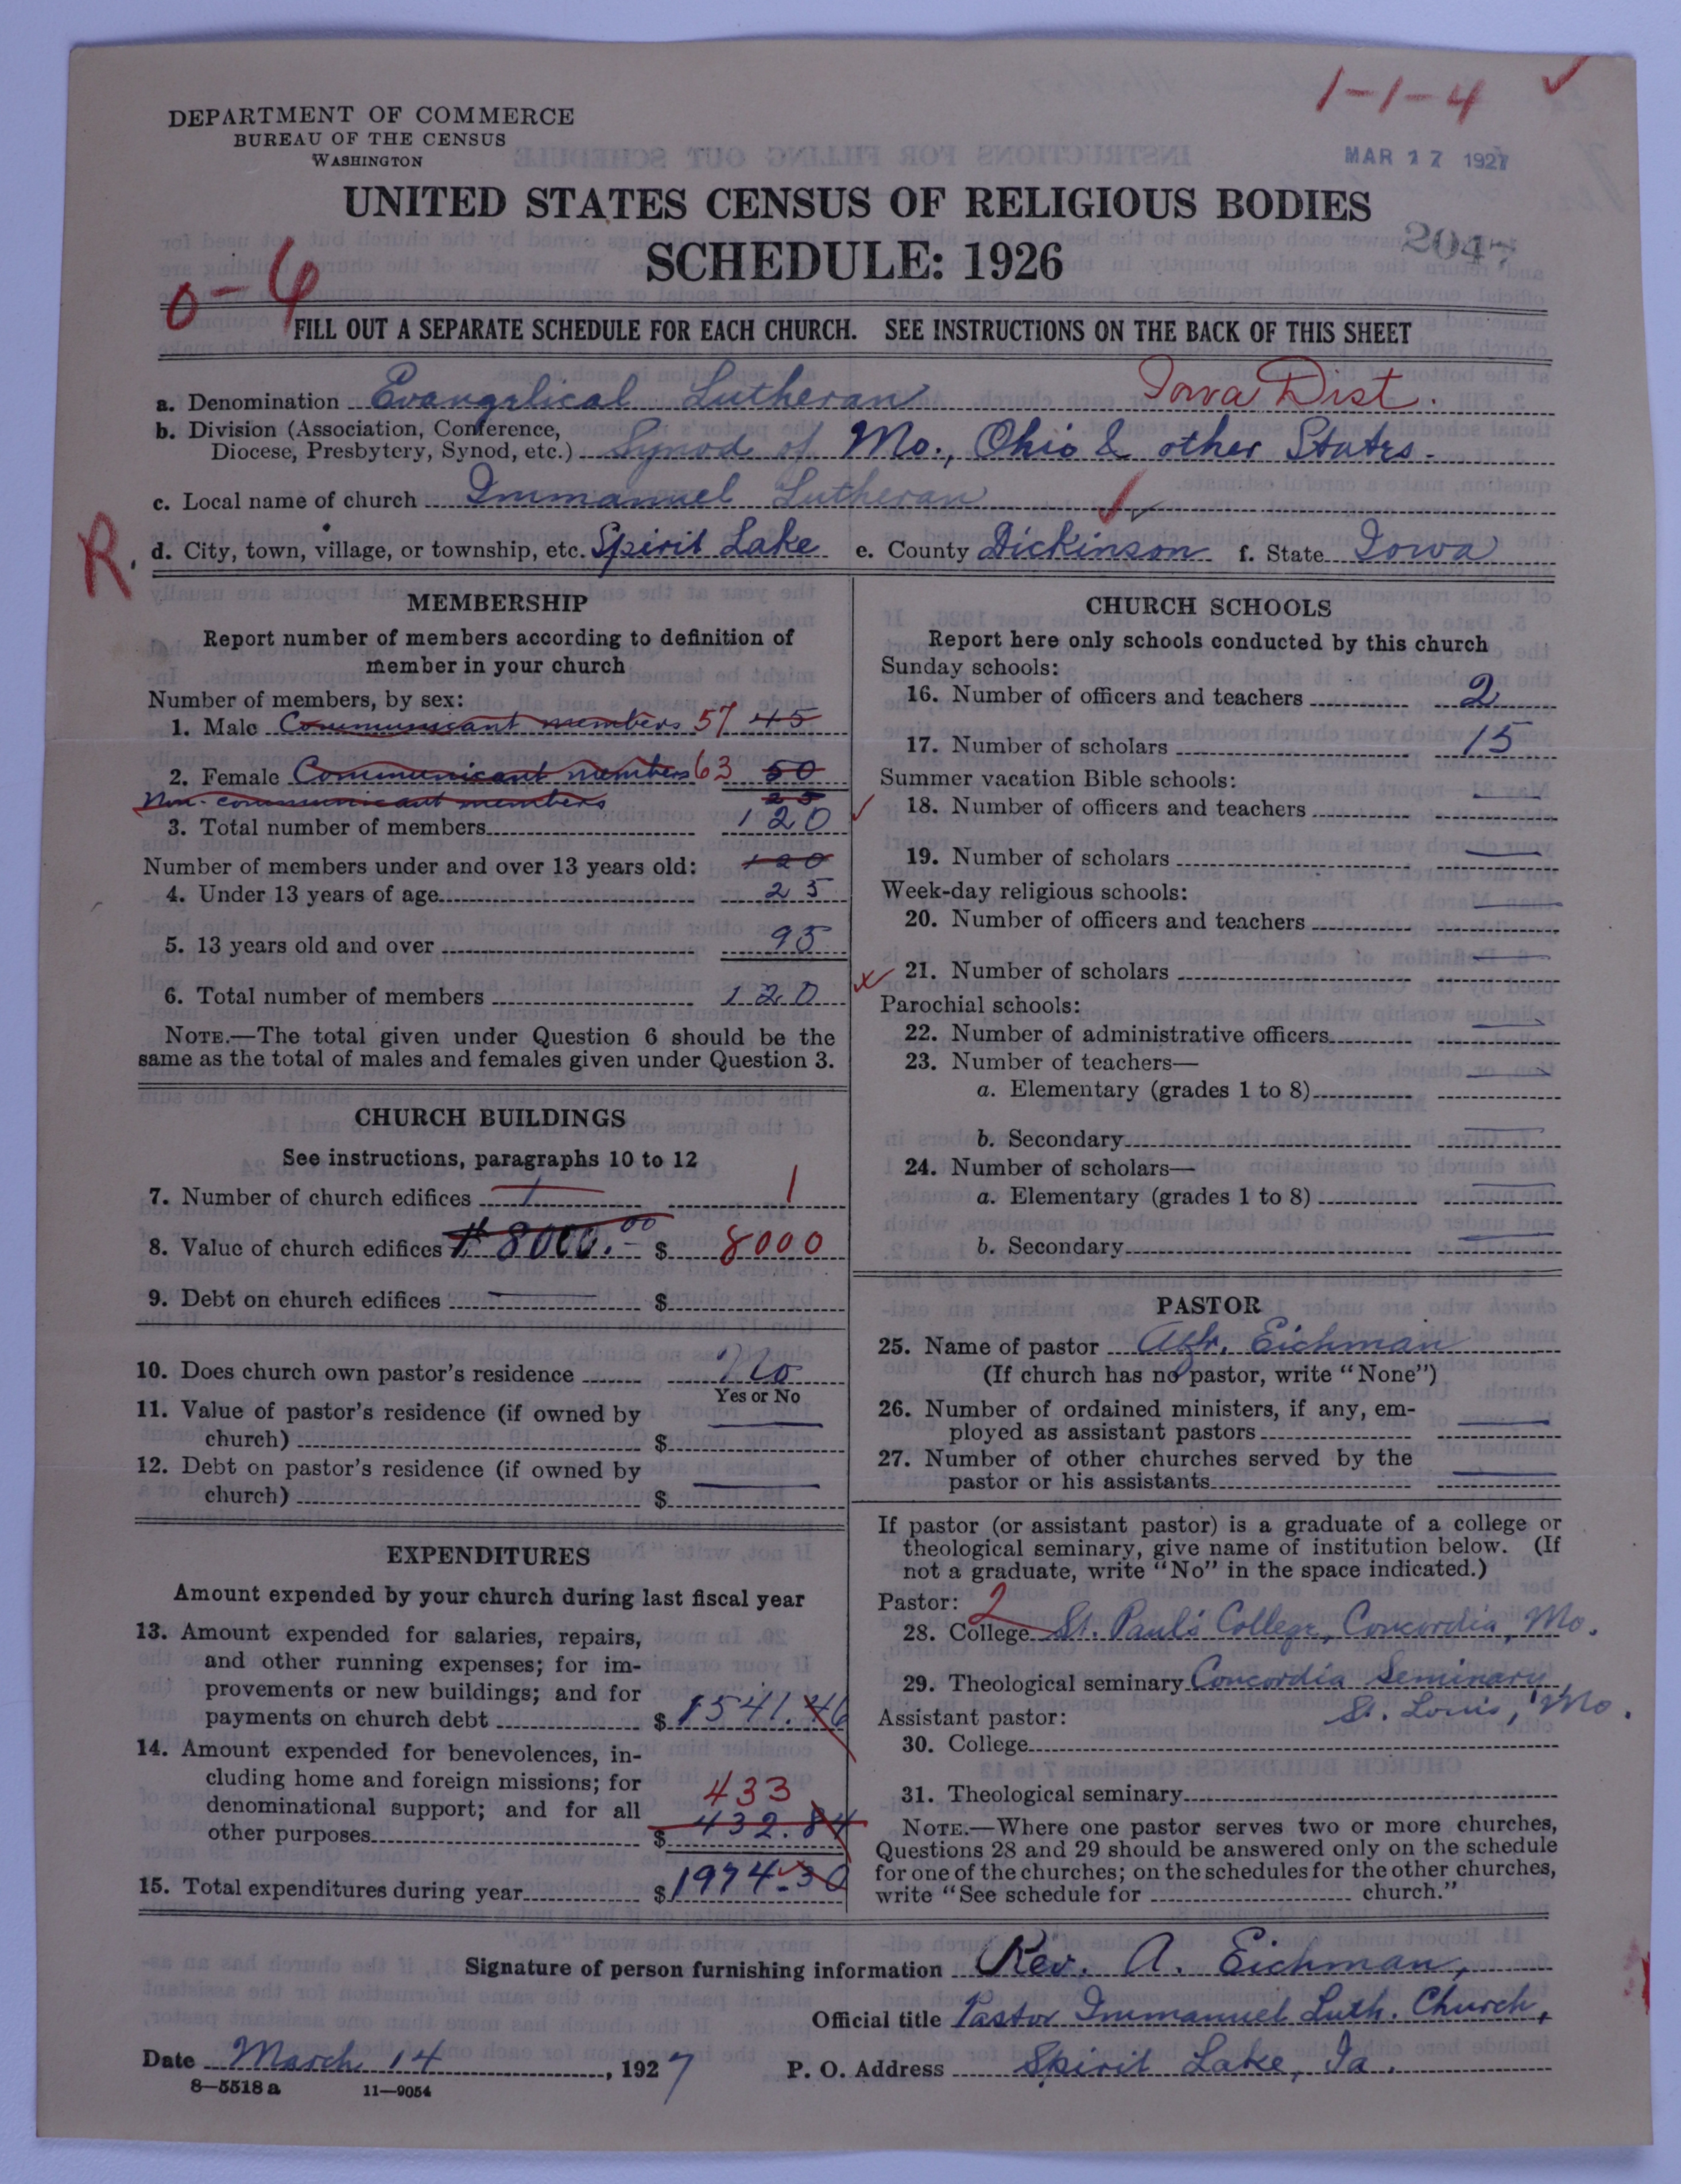 1-1-4 ✓
DEPARTMENT OF COMMERCE
BUREAU OF THE CENSUS
WASHINGTON
MAR 17 1927
UNITED STATES CENSUS OF RELIGIOUS BODIES
SCHEDULE: 1926
204
0-6
FILL OUT A SEPARATE SCHEDULE FOR EACH CHURCH. SEE INSTRUCTIONS ON THE BACK OF THIS SHEET
a. Denomination Evangelical Lutheran Iowa Dist.
b. Division (Association, Conference,
Diocese, Presbytery, Synod, etc.) Synod of Mo., Ohio & other States.
c. Local name of church Immanuel Lutheran
R.
d. City, town, village, or township, etc. Spirit Lake e. County Dickinson f. State Iowa
MEMBERSHIP
Report number of members according to definition of
member in your church
Number of members, by sex:
1. Male Communicant members 57 45
2. Female Communicant members 63 50
Non-communicant members 25
3. Total number of members 120
Number of members under and over 13 years old: 120
4. Under 13 years of age 25
5. 13 years old and over 95
6. Total number of members 120
NOTE.—The total given under Question 6 should be the
same as the total of males and females given under Question 3.
CHURCH BUILDINGS
See instructions, paragraphs 10 to 12
7. Number of church edifices 1 1
8. Value of church edifices # 8000.00 $ 8000
9. Debt on church edifices — $
10. Does church own pastor's residence No
Yes or No
11. Value of pastor's residence (if owned by
church) $ —
12. Debt on pastor's residence (if owned by
church) $ —
EXPENDITURES
Amount expended by your church during last fiscal year
13. Amount expended for salaries, repairs,
and other running expenses; for im-
provements or new buildings; and for
payments on church debt $ 1541.46
14. Amount expended for benevolences, in-
cluding home and foreign missions; for
denominational support; and for all 433
other purposes $ 432.84
15. Total expenditures during year $ 1974.30
CHURCH SCHOOLS
Report here only schools conducted by this church
Sunday schools:
16. Number of officers and teachers 2
17. Number of scholars 15
Summer vacation Bible schools:
18. Number of officers and teachers —
19. Number of scholars —
Week-day religious schools:
20. Number of officers and teachers —
21. Number of scholars —
Parochial schools:
22. Number of administrative officers —
23. Number of teachers—
a. Elementary (grades 1 to 8) —
b. Secondary —
24. Number of scholars—
a. Elementary (grades 1 to 8) —
b. Secondary —
PASTOR
25. Name of pastor Eichman
(If church has no pastor, write "None")
26. Number of ordained ministers, if any, em-
ployed as assistant pastors —
27. Number of other churches served by the
pastor or his assistants —
If pastor (or assistant pastor) is a graduate of a college or
theological seminary, give name of institution below. (If
not a graduate, write "No" in the space indicated.)
Pastor: 2
28. College St. Paul's College, Concordia, Mo.
29. Theological seminary Concordia Seminary
Assistant pastor: St. Louis, Mo.
30. College
31. Theological seminary
NOTE.—Where one pastor serves two or more churches,
Questions 28 and 29 should be answered only on the schedule
for one of the churches; on the schedules for the other churches,
write "See schedule for church."
Signature of person furnishing information Rev. A. Eichman,
Official title Pastor Immanuel Luth. Church,
Date March 14, 1927 P. O. Address Spirit Lake, Ia.
8—5518 a 11—9054